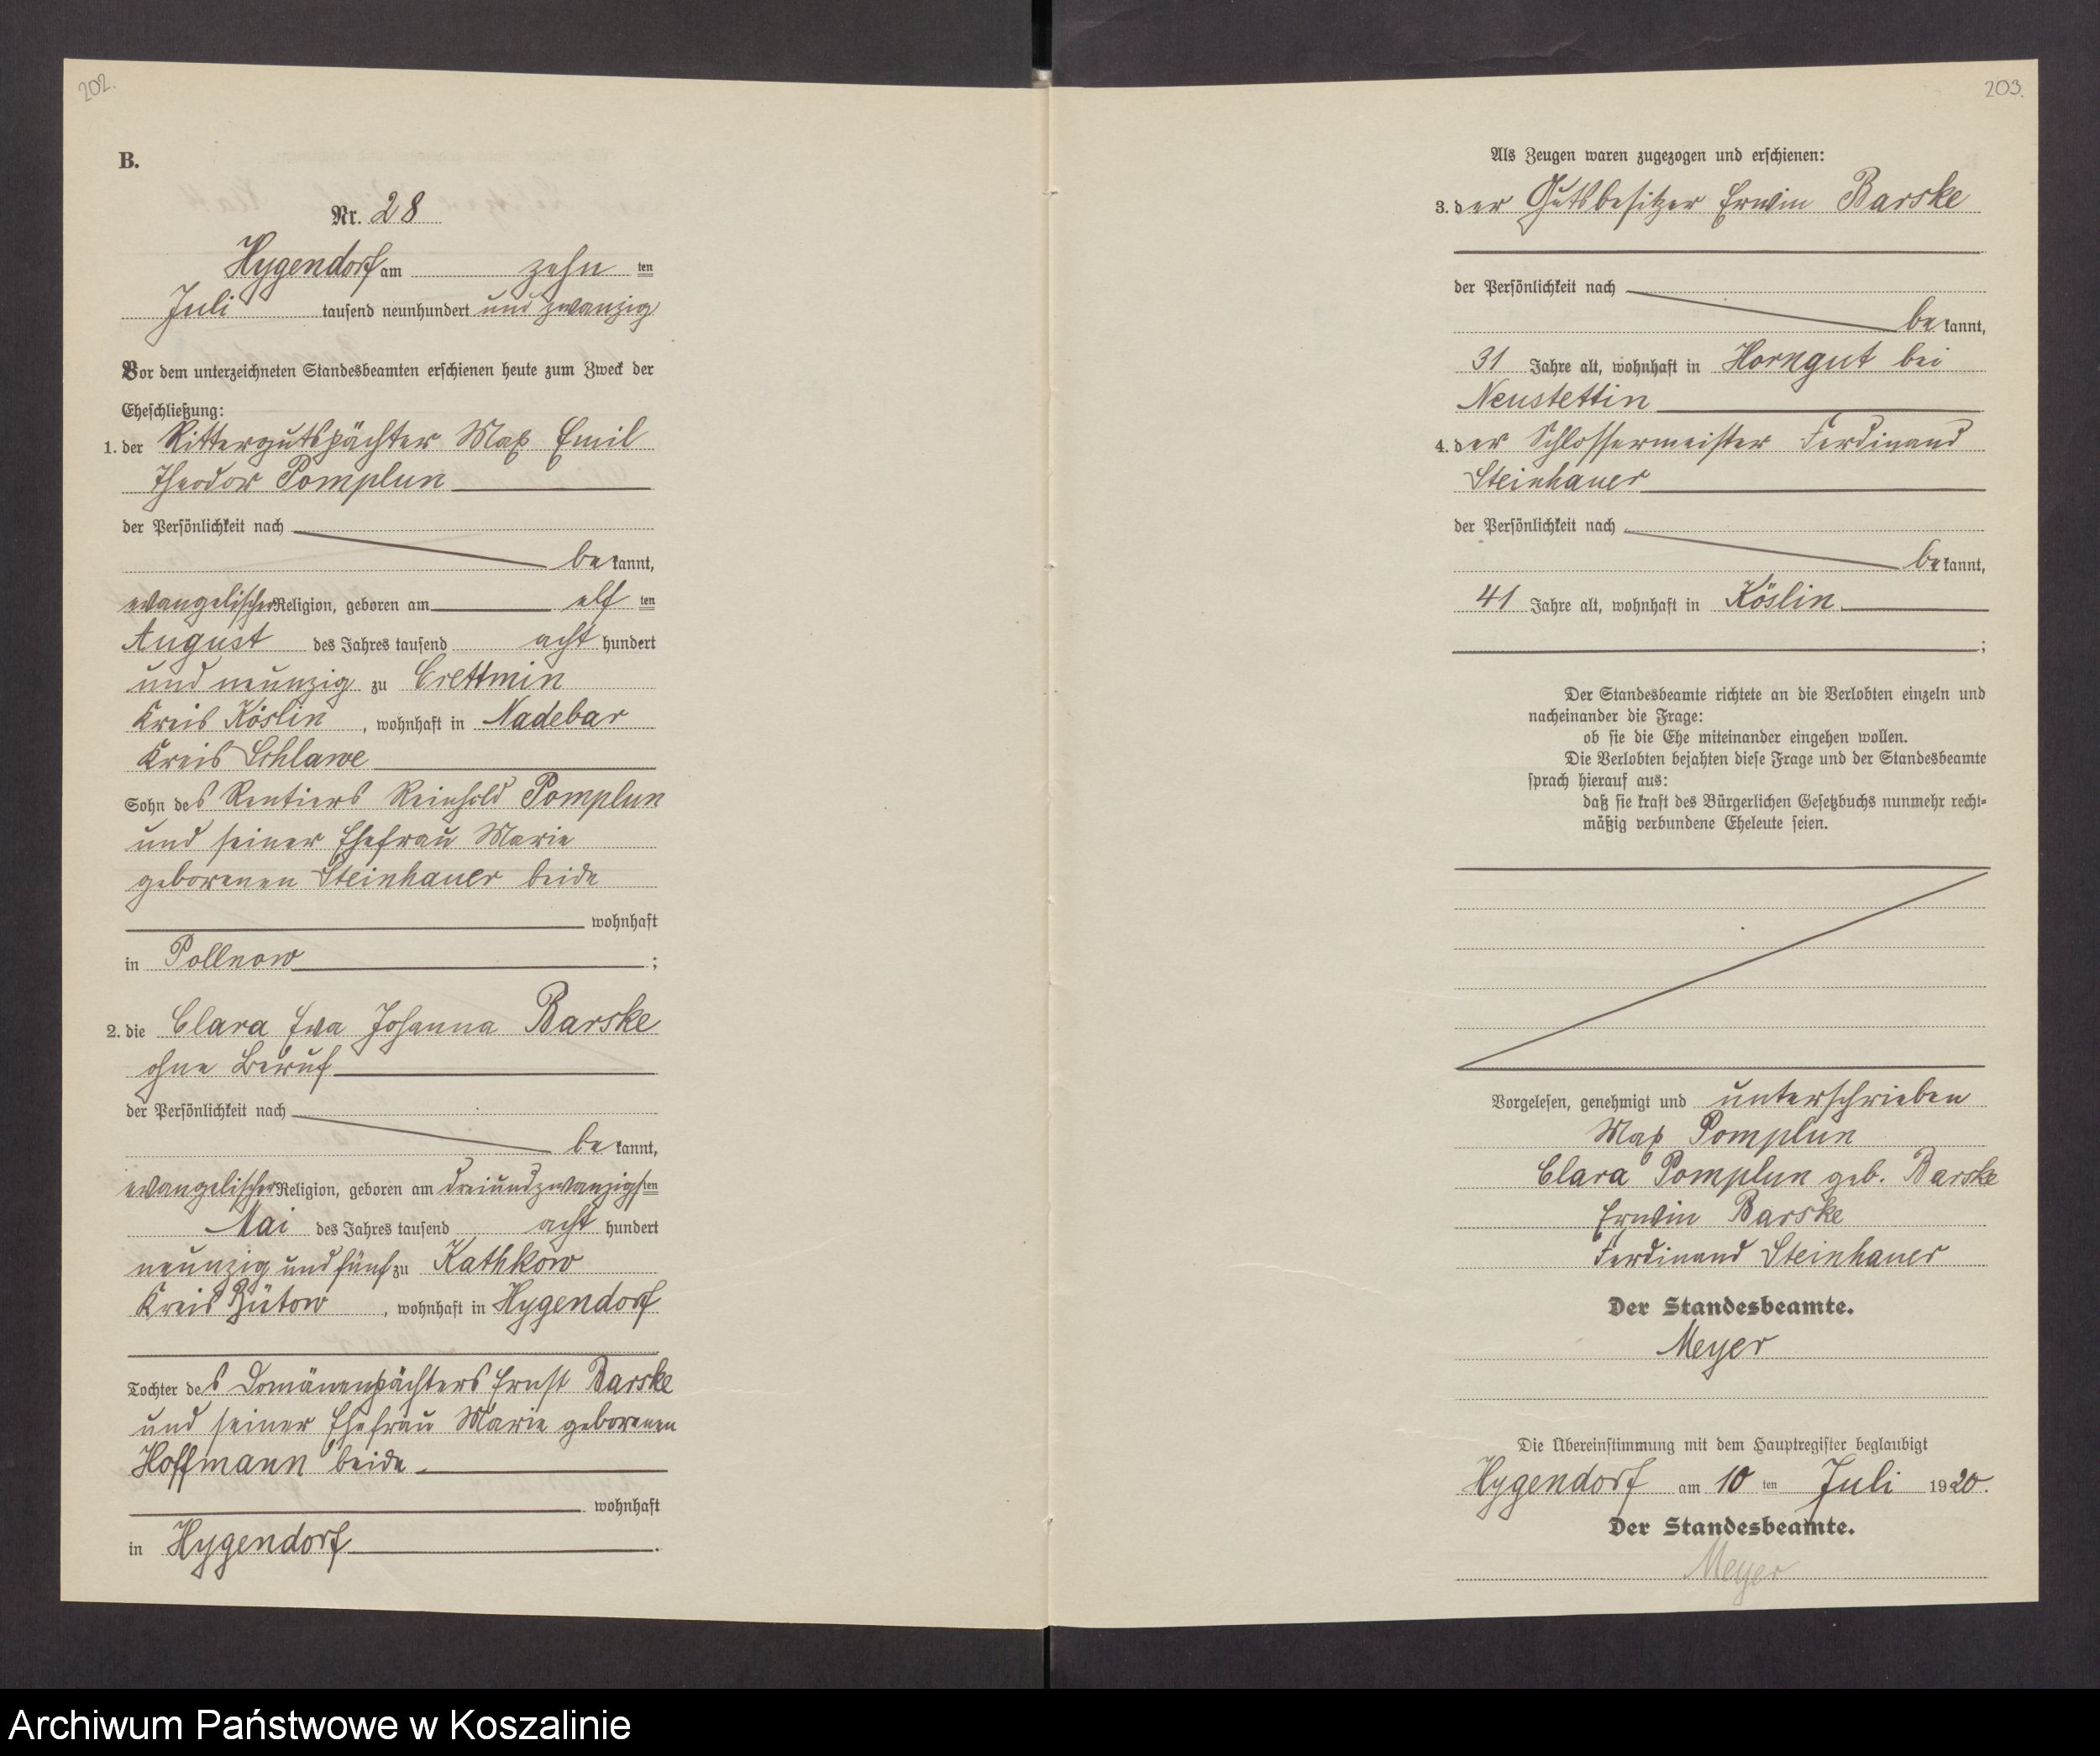 202.
B.
Nr. 28
Hygendorf am zehn ten
Juli tausend neunhundert und zwanzig
Vor dem unterzeichneten Standesbeamten erschienen heute zum Zweck der
Eheschließung:
1. der Rittergutspächter Max Emil
Theodor Pomplun
der Persönlichkeit nach
be kannt,
evangelischer Religion, geboren am elf ten
August des Jahres tausend acht hundert
und neunzig zu Crettmin
Kreis Köslin, wohnhaft in Nadebar
Kreis Schlawe
Sohn des Rentiers Reinhold Pomplun
und seiner Ehefrau Marie
geborenen Steinhauer beide
wohnhaft
in Pollnow ;
2. die Clara Eva Johanna Barske
ohne Beruf
der Persönlichkeit nach
be kannt,
evangelischer Religion, geboren am dreiundzwanzigsten
Mai des Jahres tausend acht hundert
neunzig und fünf zu Kathkow
Kreis Bütow, wohnhaft in Hygendorf
Tochter des Domänenpächters Ernst Barske
und seiner Ehefrau Marie geborenen
Hoffmann beide
wohnhaft
in Hygendorf .
203.
Als Zeugen waren zugezogen und erschienen:
3. der Gutsbesitzer Erwin Barske
der Persönlichkeit nach
be kannt,
31 Jahre alt, wohnhaft in Horngut bei
Neustettin
4. der Schlossermeister Ferdinand
Steinhauer
der Persönlichkeit nach
be kannt,
41 Jahre alt, wohnhaft in Köslin
;
Der Standesbeamte richtete an die Verlobten einzeln und
nacheinander die Frage:
ob sie die Ehe miteinander eingehen wollen.
Die Verlobten bejahten diese Frage und der Standesbeamte
sprach hierauf aus:
daß sie kraft des Bürgerlichen Gesetzbuchs nunmehr recht-
mäßig verbundene Eheleute seien.
Vorgelesen, genehmigt und unterschrieben
Max Pomplun
Clara Pomplun geb. Barske
Erwin Barske
Ferdinand Steinhauer
Der Standesbeamte.
Meyer
Die Übereinstimmung mit dem Hauptregister beglaubigt
Hygendorf am 10 ten Juli 1920.
Der Standesbeamte.
Meyer
Archiwum Państwowe w Koszalinie